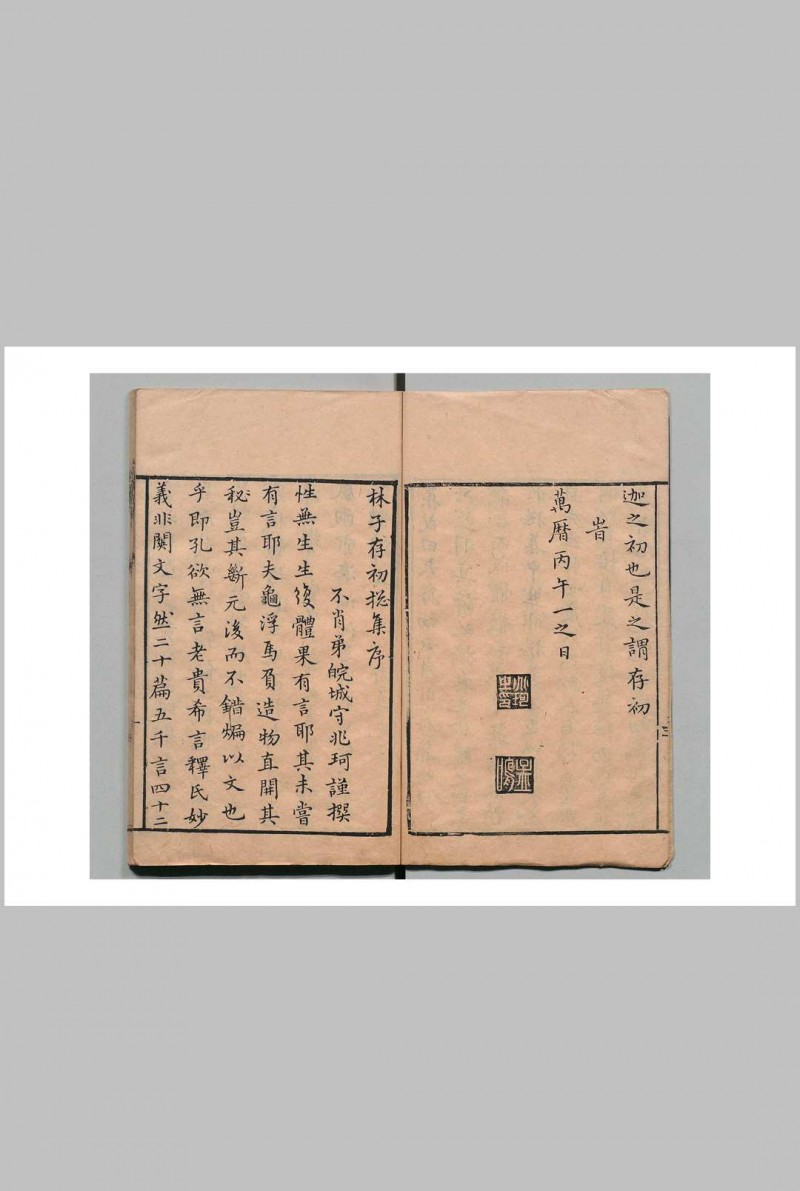 迦之初也是之謂存初
旹
萬曆丙午一之日
三
林子存初揔集序
不肖弟皖城守兆珂謹撰
性無生生復體果有言耶其未嘗
有言耶夫龜浮馬負造物直開其
秘豈其斲元浚而不錯煸以文也
乎即孔欲無言老貴希言釋氏妙
義非關文字然二十篇五千言四十二
一